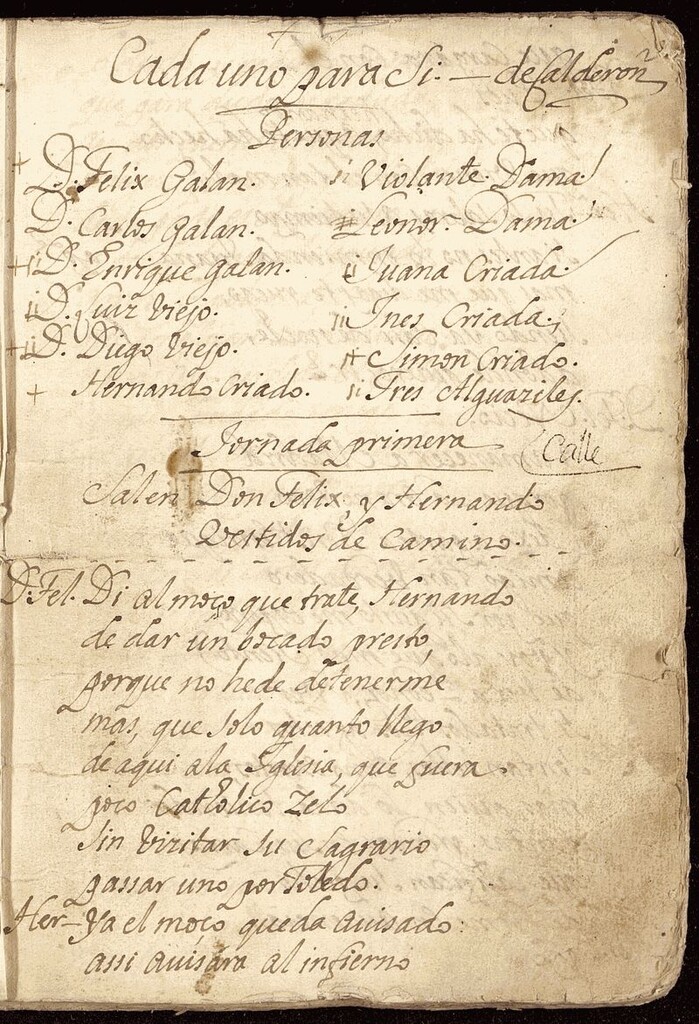 Cada uno para Si. — de Calderon
Personas
D. Felix Galan. Violante. Dama
D. Carlos Galan. Leonor. Dama.
D. Enrique Galan. Juana Criada.
D. Luiz Viejo. Ines Criada.
D. Diego Viejo. Simon Criado.
Hernando Criado. Tres Alguaziles.
Jornada primera Calle
Salen Don Felix, y Hernando
Vestidos de Camino.
D. Fel. Di al moço que trate, Hernando
de dar un bocado presto,
porque no hede detenerme
mas, que solo quanto llego
de aqui ala Iglesia, que fuera
poco Catholico Zelo
sin vizitar su Sagrario
passar uno por Toledo.
Her— Ya el moço queda avisado:
assi avisára al infierno